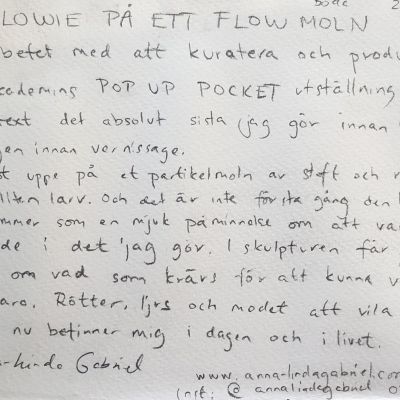 Bodc 2
LOWIE PÅ ETT FLOW MOLN
betet med att kuratera och produ
cademins POP UP POCKET utställning
text det absolut sista jag gör innan
gen innan vernissage.
st uppe på et partikelmoln av stoft och r
liten larv. Och det är inte första gång den
mmer som en mjuk påminnelse om att va
de i det jag gör. I skulpturen får j
om vad som krävs för att kunna v
ara. Rötter, ljus och modet att vila
nu befinner mig i dagen och i livet.
a-linda Gabriel
www.anna-lindagabriel.com
inst: @annalindagabriel